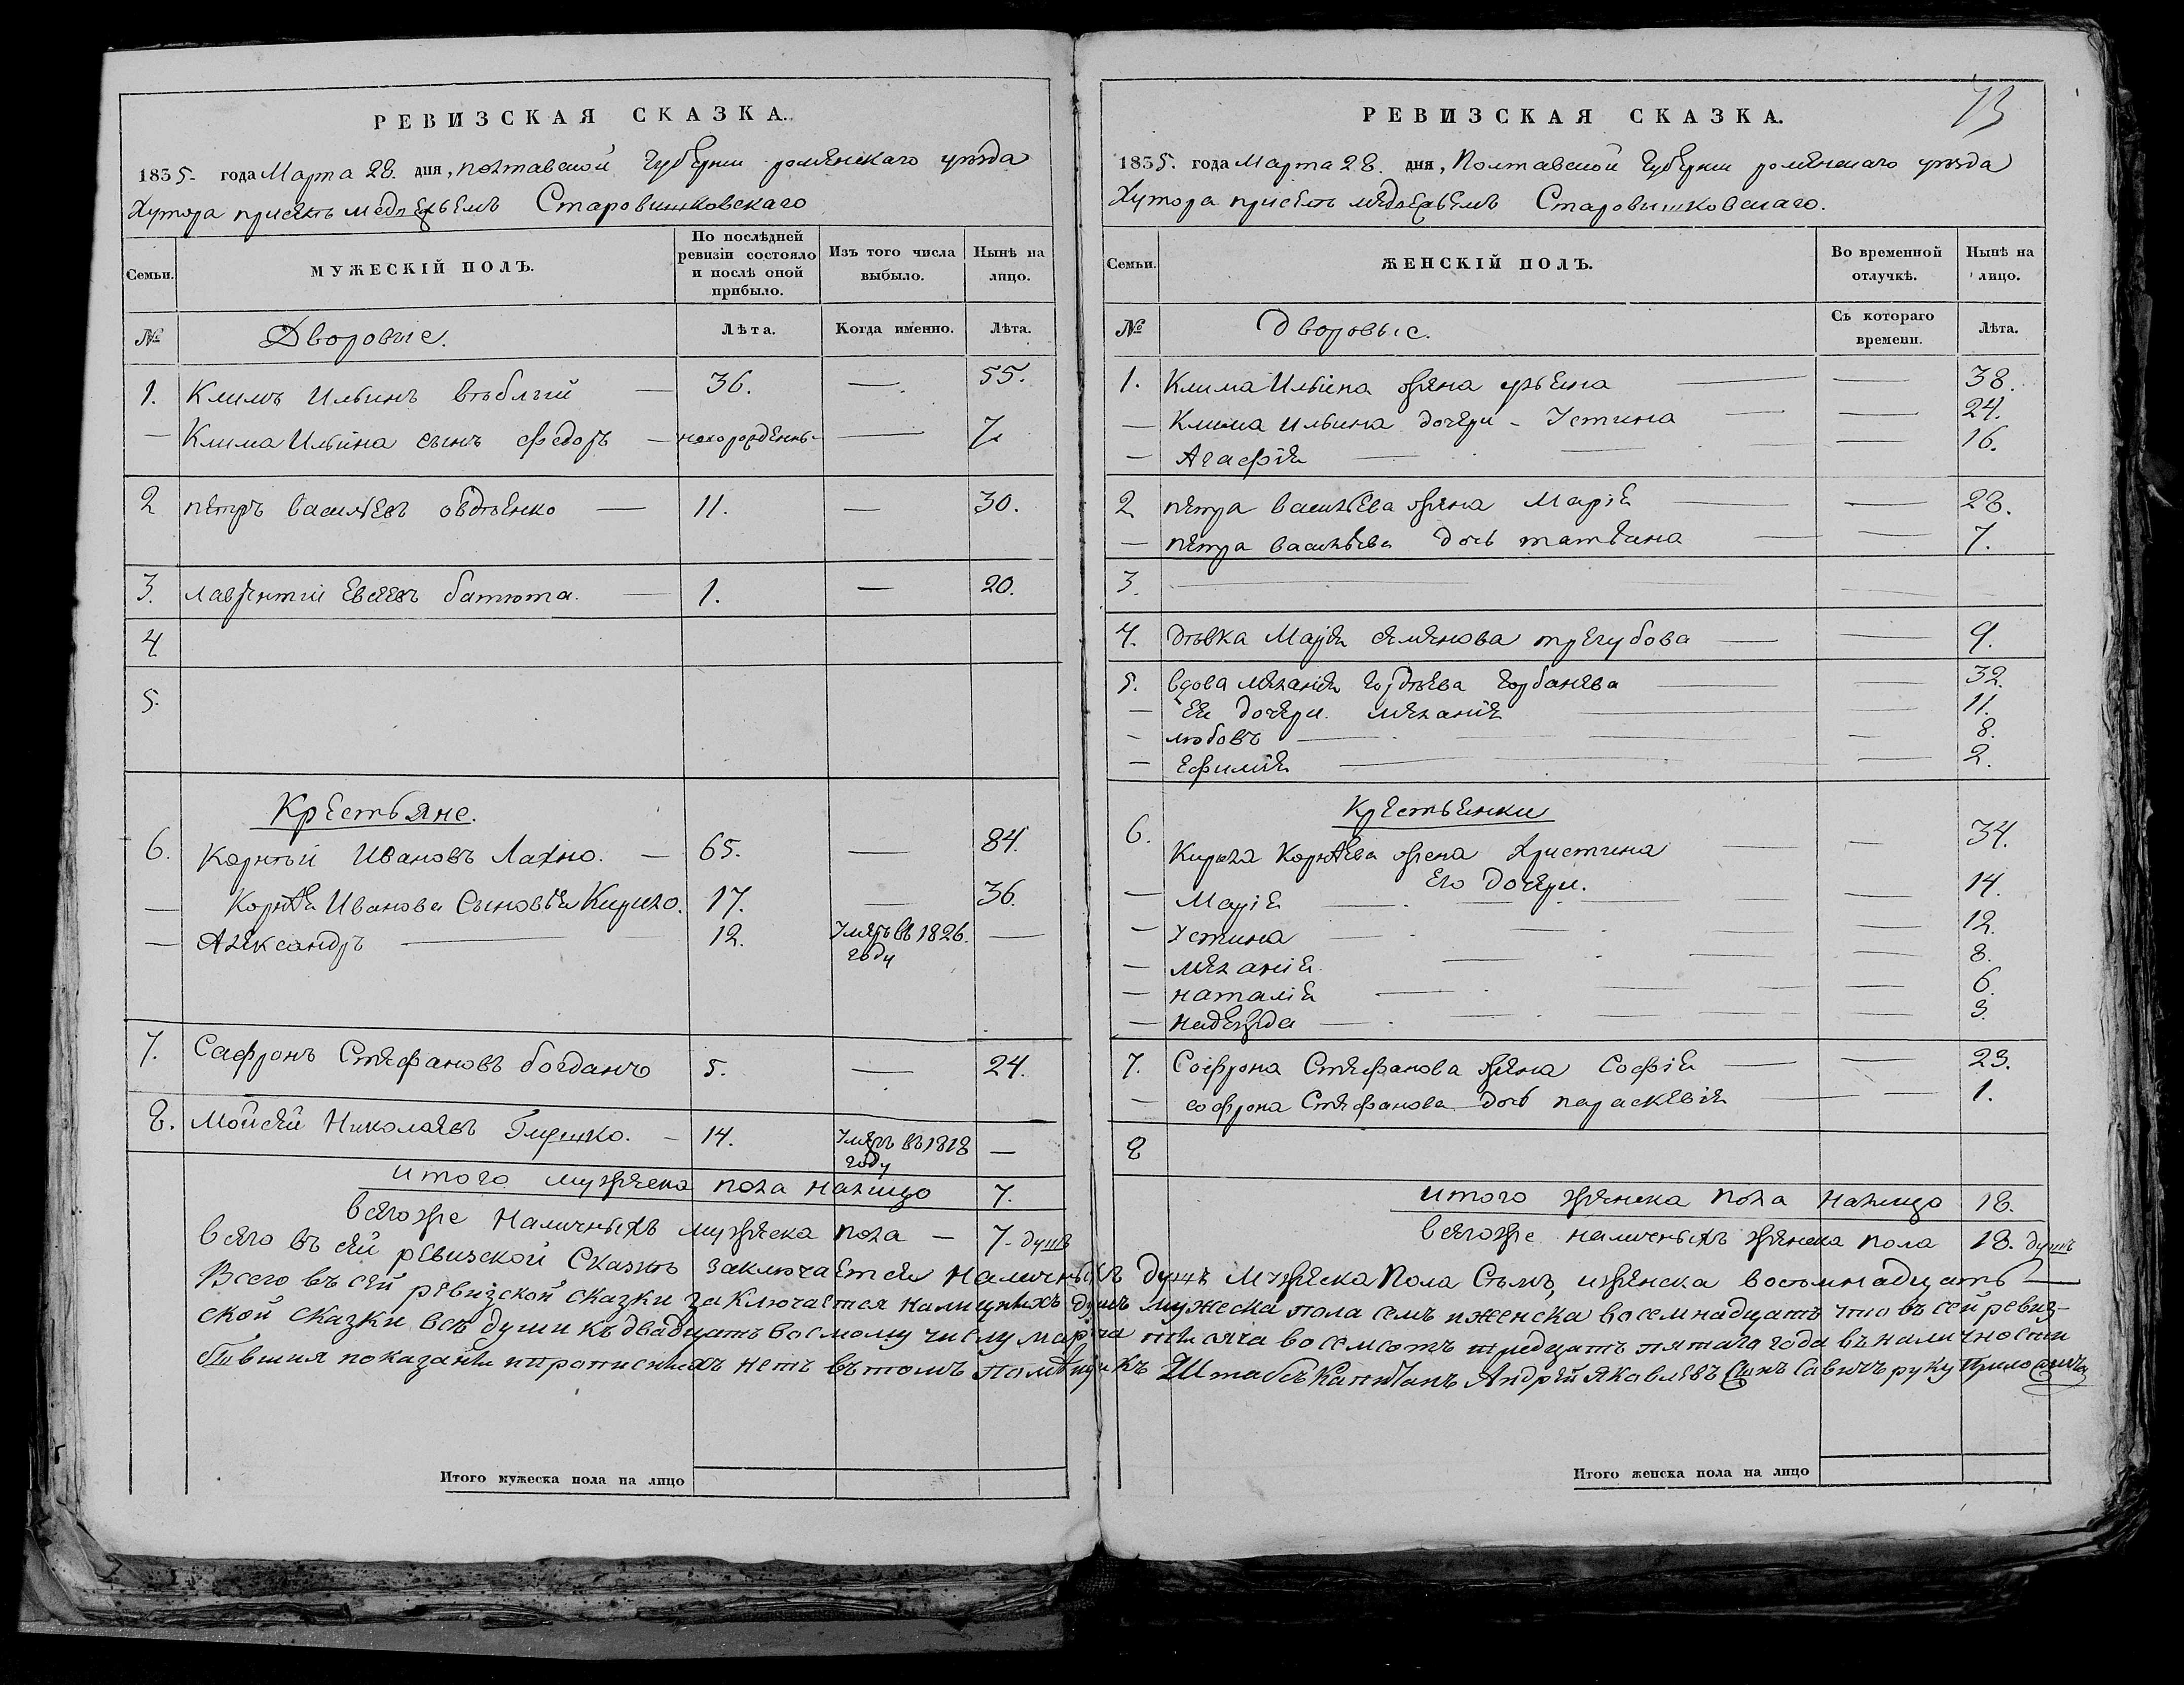 РЕВИЗСКАЯ СКАЗКА.
1835. года Марта 28. дня, полтавской Губернии роменскаго уезда
Хутора присель медвежьемъ Старовишковскаго
Семьи.
МУЖЕСКІЙ ПОЛЪ.
По послѣдней ревизіи состояло и послѣ оной прибыло.
Изъ того числа выбыло.
Нынѣ на лицо.
№
Дворовые.
Лѣта.
Когда именно.
Лѣта.
1. Климъ Ильинъ — 36. — 55.
— Клима Ильина сынъ Федоръ — новорожденны — 7.
2 петръ васильевъ овдѣенко — 11. — 30.
3. лаврентий Евсеевъ батюта. — 1. — 20.
4.
5.
Крестьяне.
6. Корнѣй Ивановъ Лахно. — 65. — 84.
— Корнѣя Иванова Сыновья Кирило. 17. — 36.
— Александръ — 12. Умеръ въ 1826. году —
7. Сафронъ Стефановъ богданъ 5. — 24.
8. Мойсей Николаевъ Глушко. — 14. Умеръ въ 1818 году —
итого мужеска пола налицо 7.
всегоже Наличныхъ мужеска пола — 7. душъ
РЕВИЗСКАЯ СКАЗКА.
73
1835. года Марта 28. дня, Полтавской Губернии роменскаго уезда
Хутора присель медвежьемъ Старовишковскаго.
Семьи.
ЖЕНСКІЙ ПОЛЪ.
Во временной отлучкѣ.
Нынѣ на лицо.
№
Дворовые.
Съ котораго времени.
Лѣта.
1. Клима Ильина жена ульяна — — 38.
— Клима ильина дочери - Устина — — 24.
— Агафія — — — 16.
2 петра васильева жена Марія — — 28.
— петра васильева дочь татьяна — — 7.
3. — — —
4. дѣвка Марія семенова трегубова — — 9.
5. вдова меланія гордѣева горбанева — — 32.
— Ея дочери. меланія — — 11.
— любовъ — — — 8.
— Ефимія — — 2.
Крестьянки
6. Кирила Корнѣева жена Христина — — 34.
Его дочери.
— Марія — — — 14.
— Устина — — — 12.
— меланія — — — 8.
— наталія — — — 6.
— надежда — — — 3.
7. Софрона Стефанова жена Софія — — 23.
— софрона Стефанова дочь параскевія — — 1.
8
итого женска пола налицо 18.
всегоже наличныхъ женска пола 18. душъ
всего въ сей ревизской Сказке заключается Наличныхъ душъ Мужеска Пола Семь, иженска восемьнадцать —
Всего въ сей ревизской сказки заключается налицныхъ душъ мужеска пола семъ иженска восемнадцать что въ сей ревиз-
ской сказки всѣ души къ двадцать восмому числу марта тысяча восемсотъ тредцать пятага года въ наличности
бывшия показаны ипрописныхъ нетъ вътомъ помѣщикъ Штабсъ Капитанъ Андрей Яковлевъ Сынъ Савичъ руку приложилъ
Итого мужеска пола на лицо
Итого женска пола на лицо